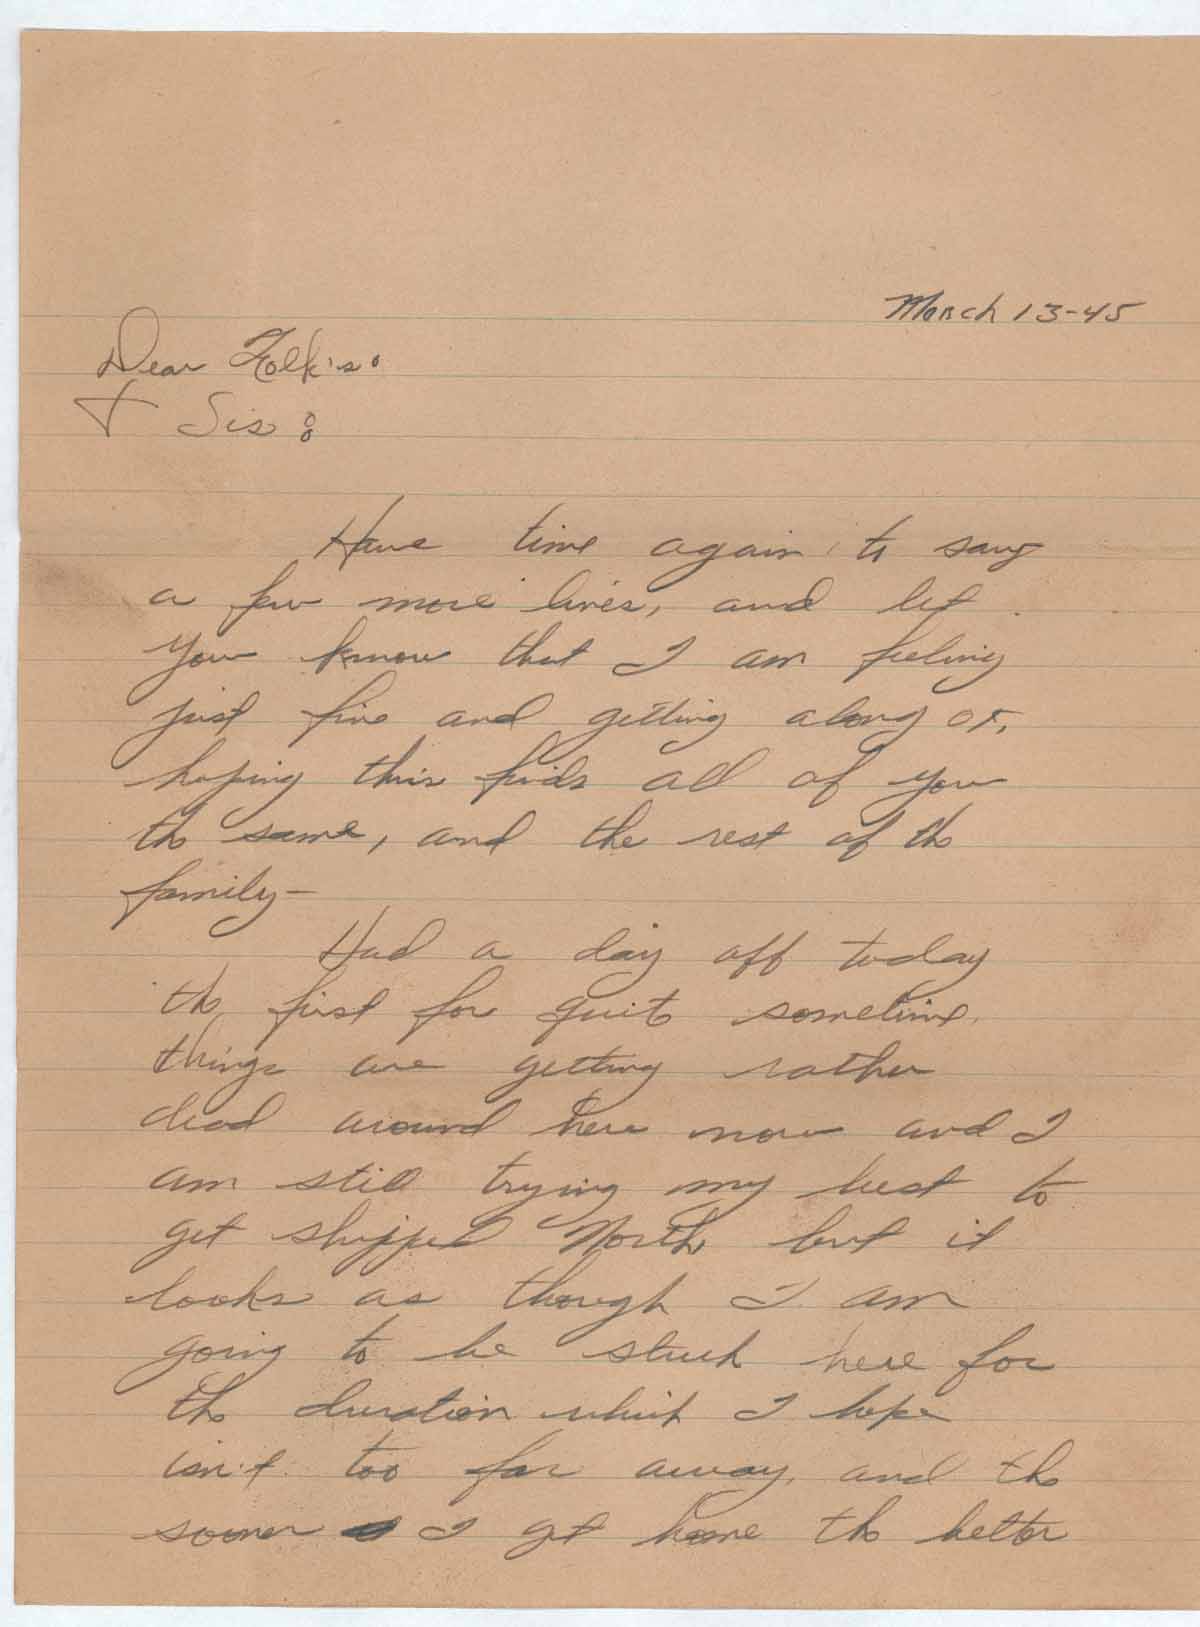 March 13-45
Dear Folk's:
+ Sis:
Have time again to say
a few more lines, and let
you know that I am feeling
just fine and getting along OK,
hoping this finds all of you
the same, and the rest of the
family-
Had a day off today
the first for quite sometime.
things are getting rather
dead around here now and I
am still trying my best to
get shipped North but it
looks as though I am
going to be stuck here for
the duration which I hope
isn't too far away, and the
sooner I get home the better